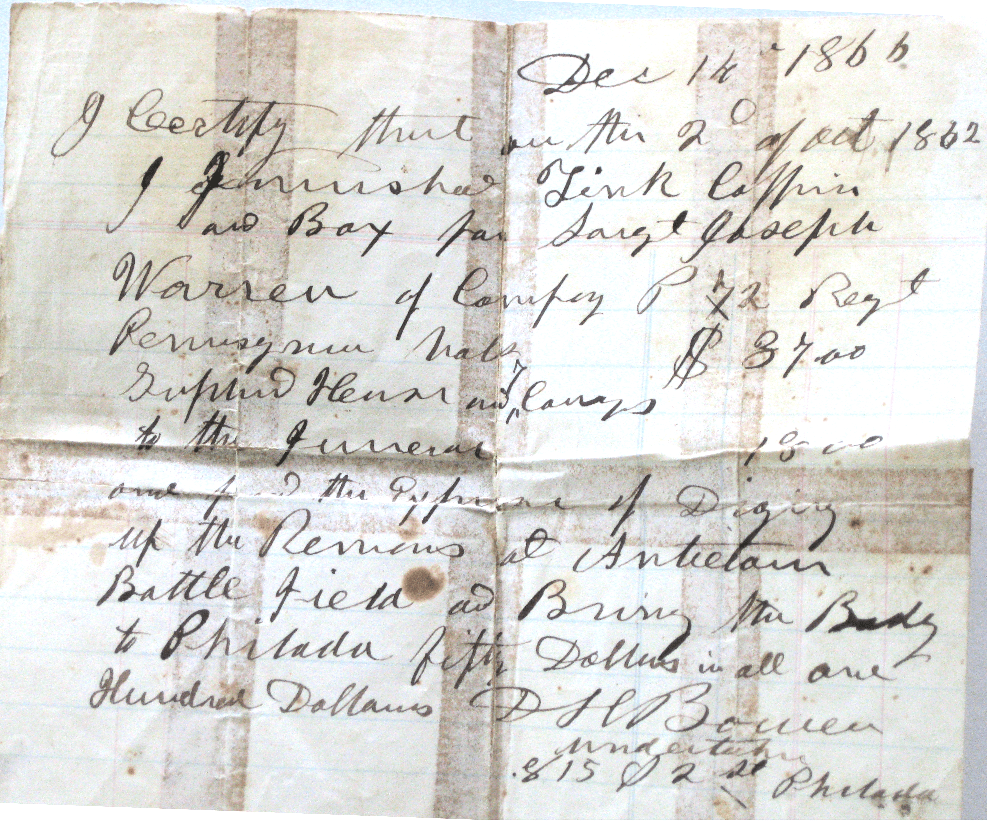 Dec 14 1866
I Certify that on the 2d of oct 1862
I Furnished Zink Coffin
and Box for Sargt Joseph
Warren of Compay P 72 Regt
$ 37.00
Hearse and
to the Funeral 13 00
and the Expense of Diging
up the Remans at Antietam
Battle Field ad Bring the Body
to Philada fifty Dollars in all one
Hundred Dollars D H Bowen
undertaker
815 S 2 st Philada